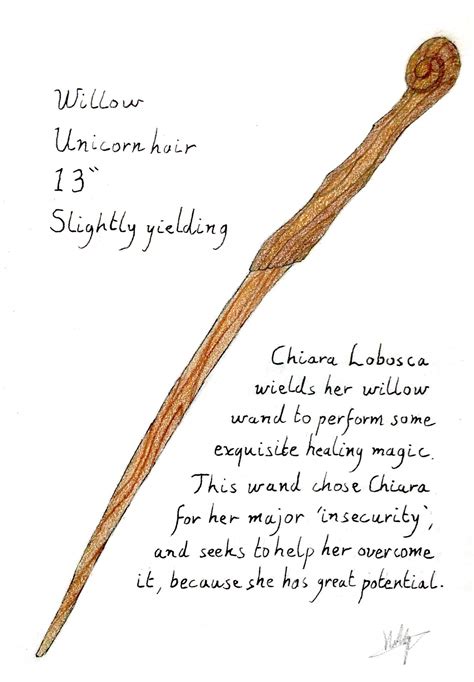 Willow
Unicorn hair
13"
Slightly yielding
Chiara Lobosca
wields her willow
wand to perform some
exquisite healing magic.
This wand chose Chiara
for her major 'insecurity',
and seeks to help her overcome
it, because she has great potential.